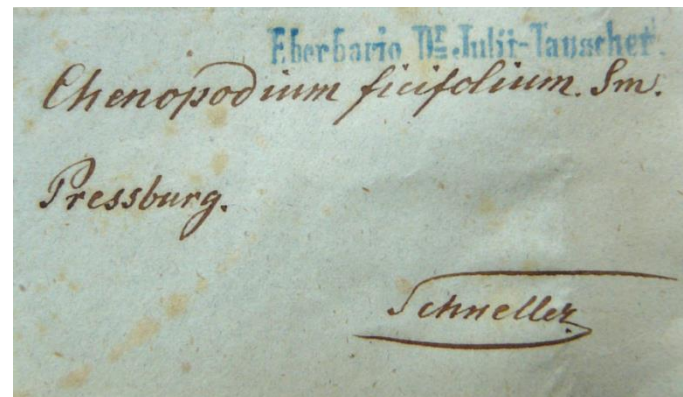 E herbario Dr. Julii-Tauscher.
Chenopodium ficifolium. Sm.
Pressburg.
Schneller.